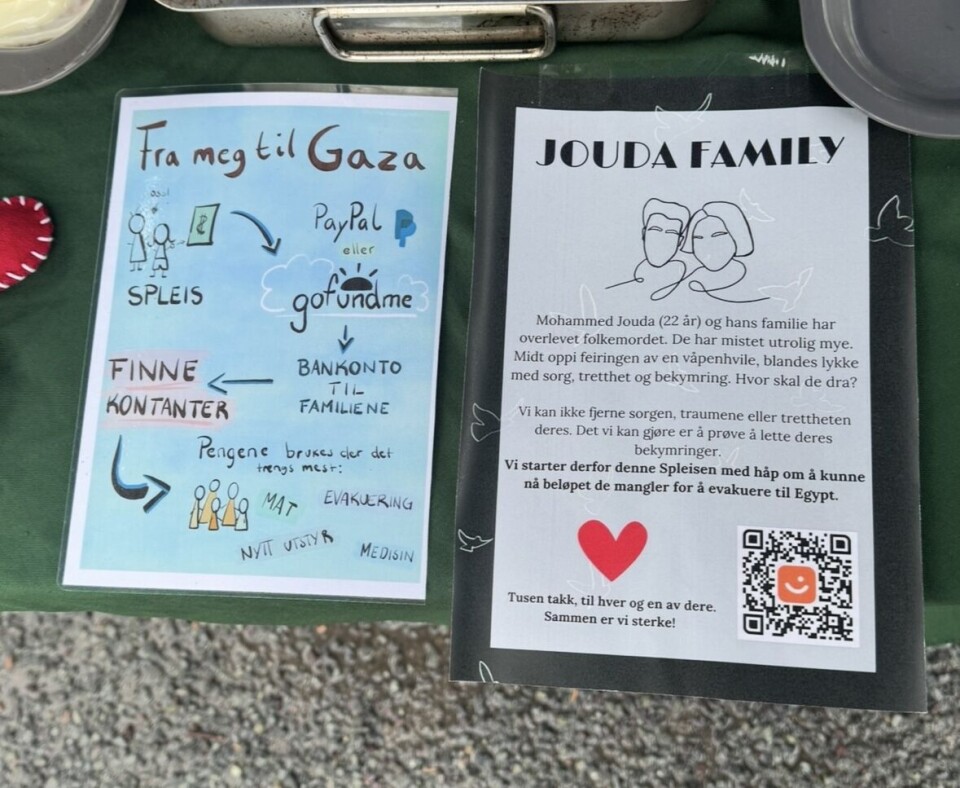 Fra meg til Gaza
SPLEIS
PayPal
eller
gofundme
BANKONTO
TIL
FAMILIENE
FINNE
KONTANTER
Pengene brukes der det
trengs mest:
MAT
EVAKUERING
NYTT UTSTYR
MEDISIN
JOUDA FAMILY
Mohammed Jouda (22 år) og hans familie har
overlevet folkemordet. De har mistet utrolig mye.
Midt oppi feiringen av en våpenhvile, blandes lykke
med sorg, tretthet og bekymring. Hvor skal de dra?
Vi kan ikke fjerne sorgen, traumene eller trettheten
deres. Det vi kan gjøre er å prøve å lette deres
bekymringer.
Vi starter derfor denne Spleisen med håp om å kunne
nå beløpet de mangler for å evakuere til Egypt.
Tusen takk, til hver og en av dere.
Sammen er vi sterke!